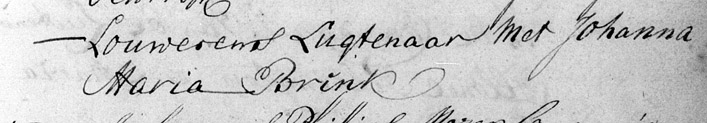 Louwerens Lugtenaar Met Johanna
Maria Brink